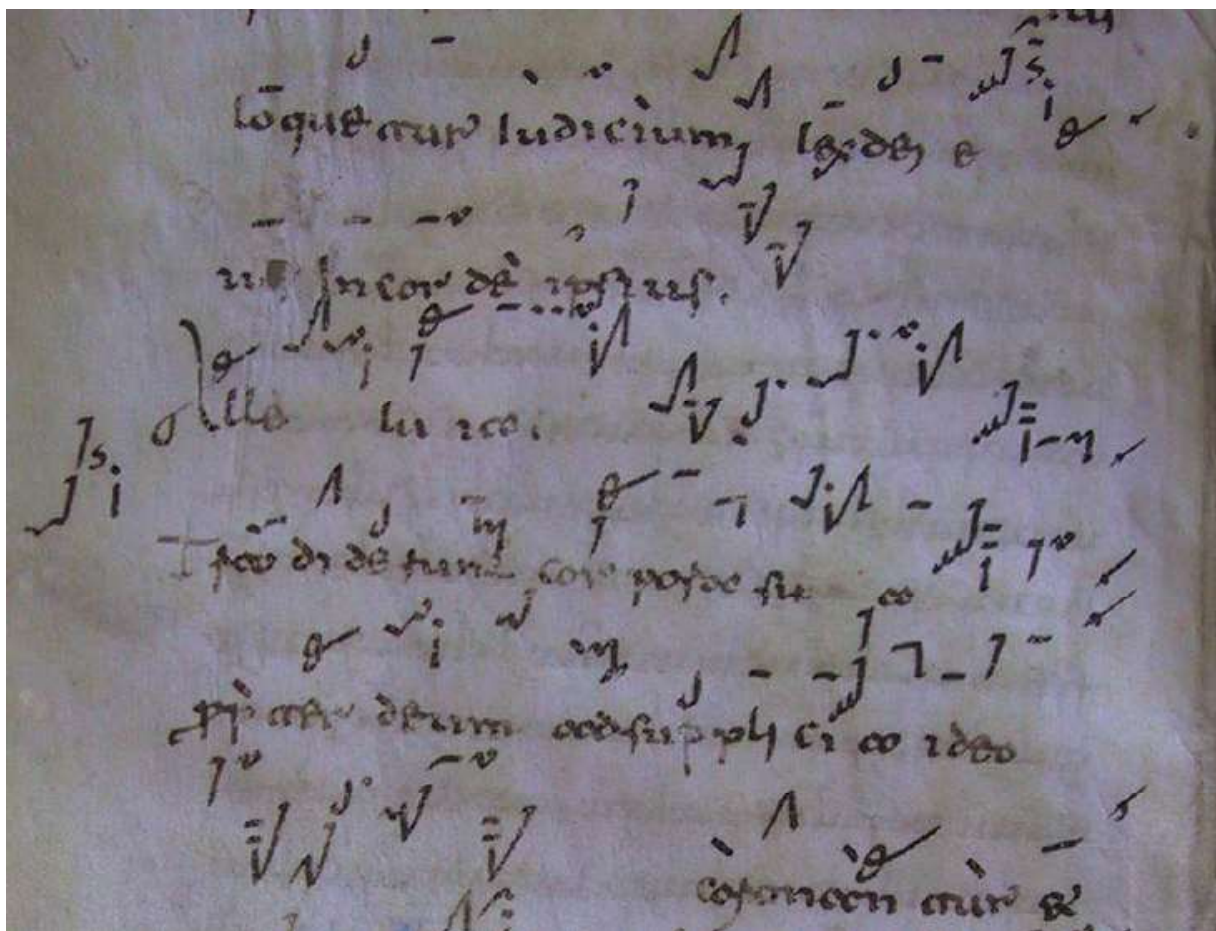 loque tur iudicium lex dei e
ius In cor de ipsius.
Alle lu ia.
Tra di de runt cor pora su a
propter deum ad suppli ci a ideo
coronan tur &